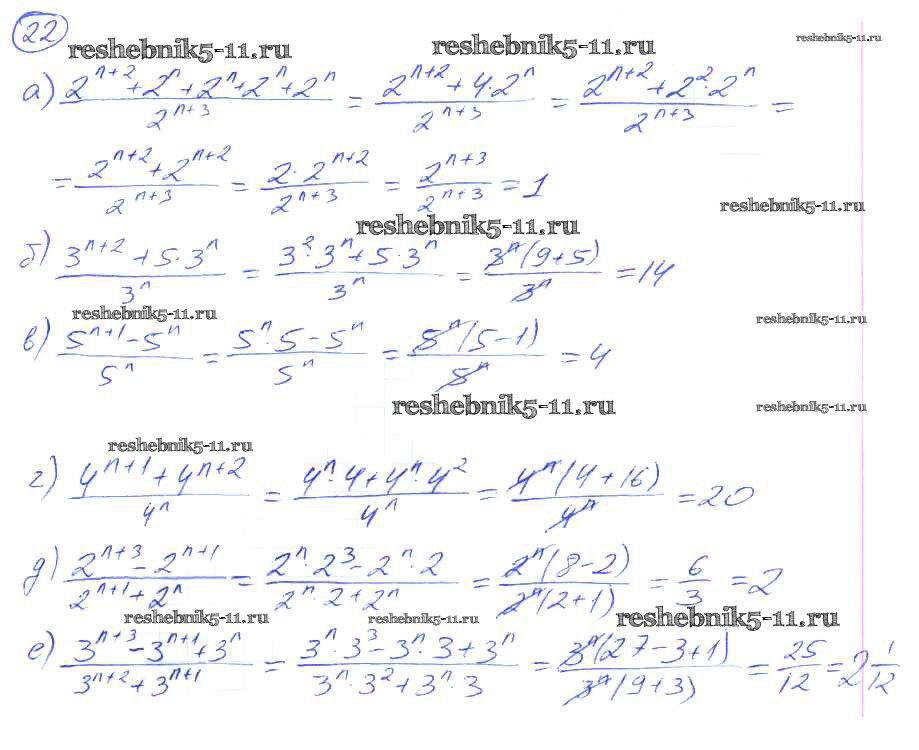 22
reshebnik5-11.ru reshebnik5-11.ru reshebnik5-11.ru
а) (2^(n+2) + 2^n + 2^n + 2^n + 2^n)/2^(n+3) = (2^(n+2) + 4·2^n)/2^(n+3) = (2^(n+2) + 2^2·2^n)/2^(n+3) =
= (2^(n+2) + 2^(n+2))/2^(n+3) = (2·2^(n+2))/2^(n+3) = 2^(n+3)/2^(n+3) = 1
reshebnik5-11.ru
reshebnik5-11.ru
б) (3^(n+2) + 5·3^n)/3^n = (3^2·3^n + 5·3^n)/3^n = (3^n(9+5))/3^n = 14
reshebnik5-11.ru reshebnik5-11.ru
в) (5^(n+1) - 5^n)/5^n = (5^n·5 - 5^n)/5^n = (5^n(5-1))/5^n = 4
reshebnik5-11.ru reshebnik5-11.ru
reshebnik5-11.ru
г) (4^(n+1) + 4^(n+2))/4^n = (4^n·4 + 4^n·4^2)/4^n = (4^n(4+16))/4^n = 20
д) (2^(n+3) - 2^(n+1))/(2^(n+1) + 2^n) = (2^n·2^3 - 2^n·2)/(2^n·2 + 2^n) = (2^n(8-2))/(2^n(2+1)) = 6/3 = 2
reshebnik5-11.ru reshebnik5-11.ru reshebnik5-11.ru
е) (3^(n+3) - 3^(n+1) + 3^n)/(3^(n+2) + 3^(n+1)) = (3^n·3^3 - 3^n·3 + 3^n)/(3^n·3^2 + 3^n·3) = (3^n(27-3+1))/(3^n(9+3)) = 25/12 = 2 1/12